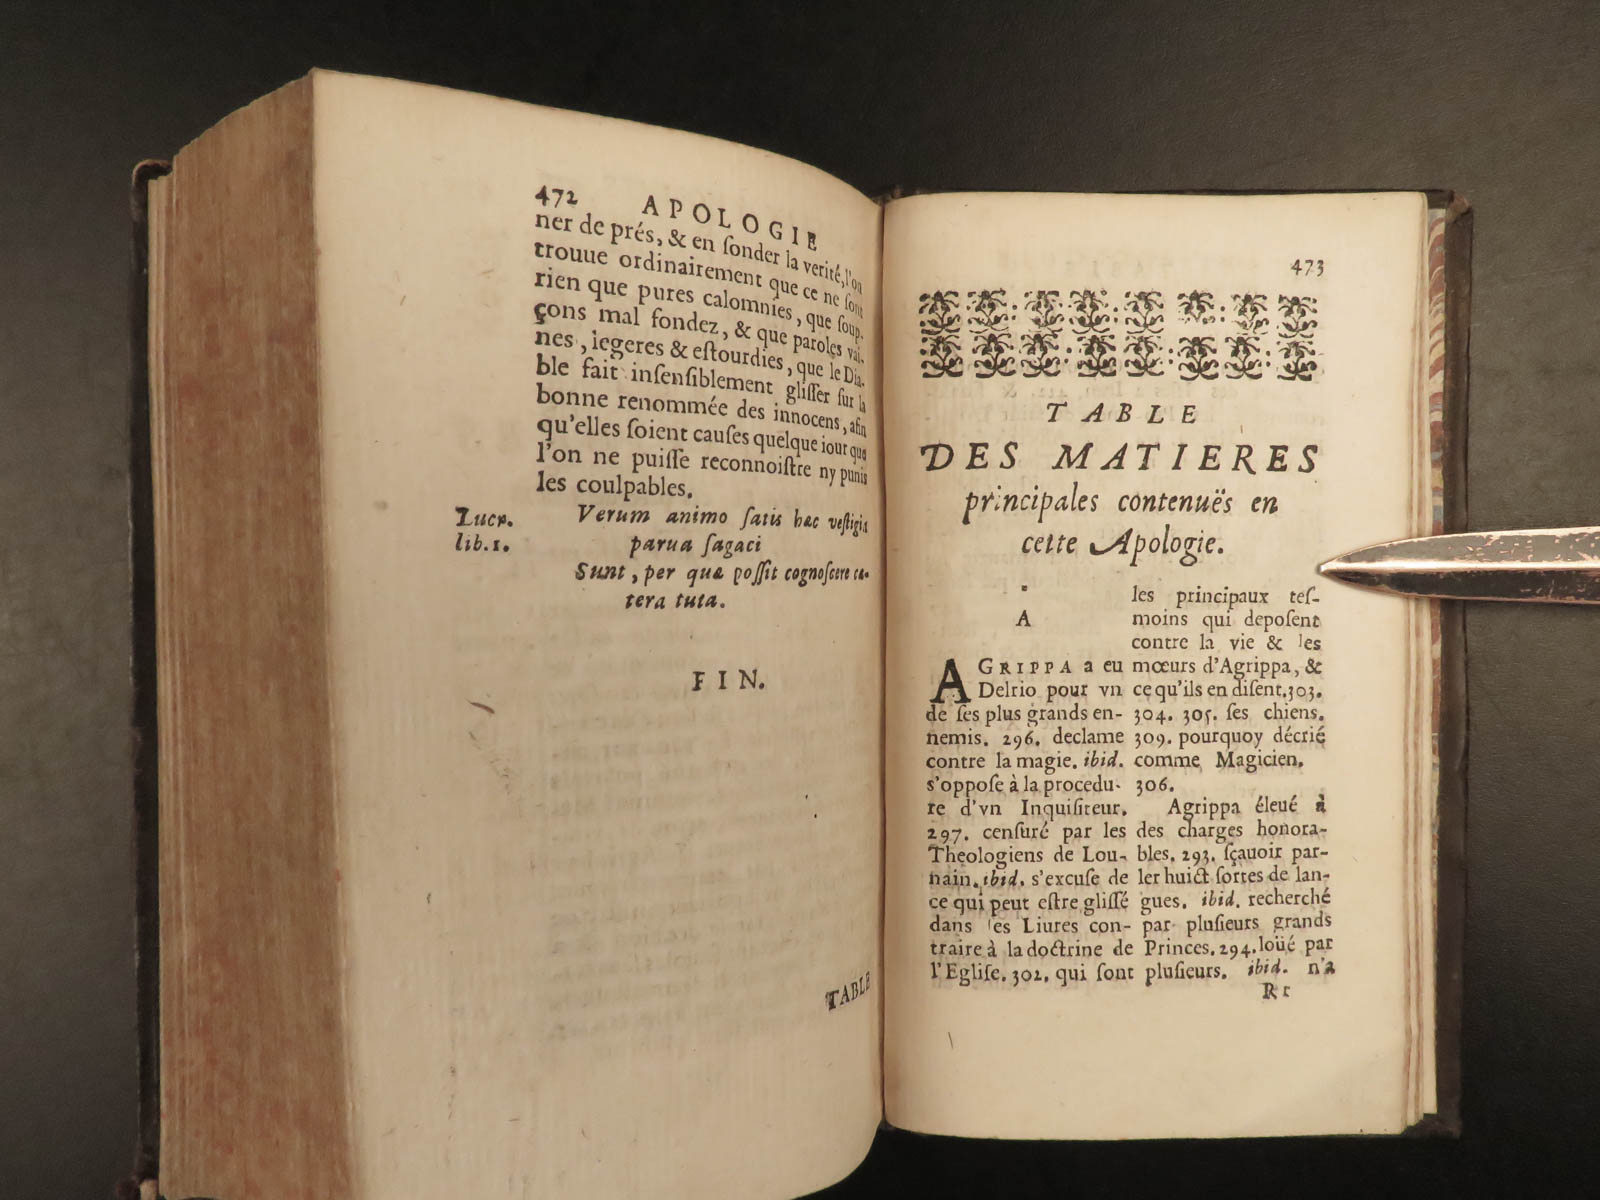 472 APOLOGIE
ner de prés, & en ſonder la verité, l'on
trouue ordinairement que ce ne ſont
rien que pures calomnies, que ſoup-
çons mal fondez, & que paroles vai-
nes, legeres & eſtourdies, que le Dia-
ble fait inſenſiblement gliſſer ſur la
bonne renommée des innocens, afin
qu'elles ſoient cauſes quelque iour que
l'on ne puiſſe reconnoiſtre ny punir
les coulpables.
Lucr.
lib.1.
Verum animo ſatis hæc veſtigia
parua ſagaci
Sunt, per quæ poſſit cognoſcere cæ-
tera tuta.
FIN.
TABLE
473
TABLE
DES MATIERES
principales contenuës en
cette Apologie.
A
AGRIPPA a eu
Delrio pour vn
de ſes plus grands en-
nemis. 296. declame
contre la magie. ibid.
s'oppoſe à la procedu-
re d'vn Inquiſiteur.
297. cenſuré par les
Theologiens de Lou-
uain. ibid. s'excuſe de
ce qui peut eſtre gliſſé
dans ſes Liures con-
traire à la doctrine de
l'Egliſe. 302. qui ſont
les principaux teſ-
moins qui depoſent
contre la vie & les
mœurs d'Agrippa, &
ce qu'ils en diſent. 303.
304. 305. ſes chiens.
309. pourquoy décrié
comme Magicien.
306.
Agrippa éleué à
des charges honora-
bles. 293. ſçauoir par-
ler huict ſortes de lan-
gues. ibid. recherché
par pluſieurs grands
Princes. 294. loüé par
pluſieurs. ibid. n'a
Rr